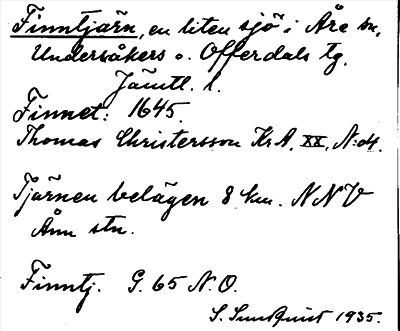 Finntjärn, en liten sjö i Åre sn,
Undersåkers o. Offerdals tg.
Jämtl. l.
Finnet: 1645.
Thomas Christersson KrA, XX, N:o4.
Tjärnen belägen 8 km. NNV
Ånn stn.
Finntj. G. 65 N.O.
S. Sundquist 1935.